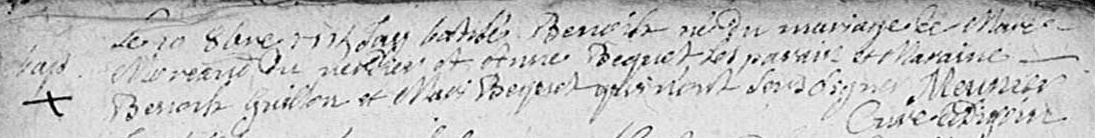 Le 10 8bre 1714 Jay batisé Benoist né du mariage de Marc
bap. Moreau du et Anne Bequet les parain et Maraine
Benoist Guillon et Marie Bequet qui nont sceu signer Meunier
Curé